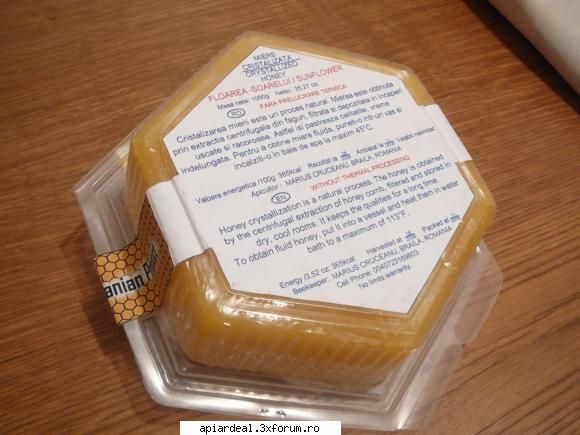 MIERE
CRISTALIZATA
CRYSTALLIZED
HONEY
FLOAREA -SOARELUI / SUNFLOWER
Masa neta: 1000g Netto: 35.27 oz.
FARA PRELUCRARE TERMICA
RO
Cristalizarea mierii este un proces natural. Mierea este obtinuta
prin extractia centrifugala din faguri, filtrata si depozitata in incaperi
uscate si racoroase. Astfel isi pastreaza calitatile, vreme
indelungata. Pentru a obtine miere fluida, puneti-o intr-un vas si
incalziti-o in baie de apa la maxim 45°C.
Valoare energetica /100g: 365kcal Recoltat la Ambalat la Valabil nelimitat.
Apicultor : MARIUS CRUCEANU, BRAILA, ROMANIA
EN
WITHOUT THERMAL PROCESSING
Honey crystallization is a natural process. The honey is obtained
by the centrifugal extraction of honey comb, filtrated and stored in
dry, cool rooms. It keeps the qualities for a long time.
To obtain fluid honey, put it into a vessel and heat them in water
bath to a maximum of 113°F.
Energy /3.52 oz: 365kcal Harvested at Packed at
Beekeeper: MARIUS CRUCEANU, BRAILA, ROMANIA
Cell Phone: 0040723169603
No limits warranty.
anian
apiardeal.3xforum.ro